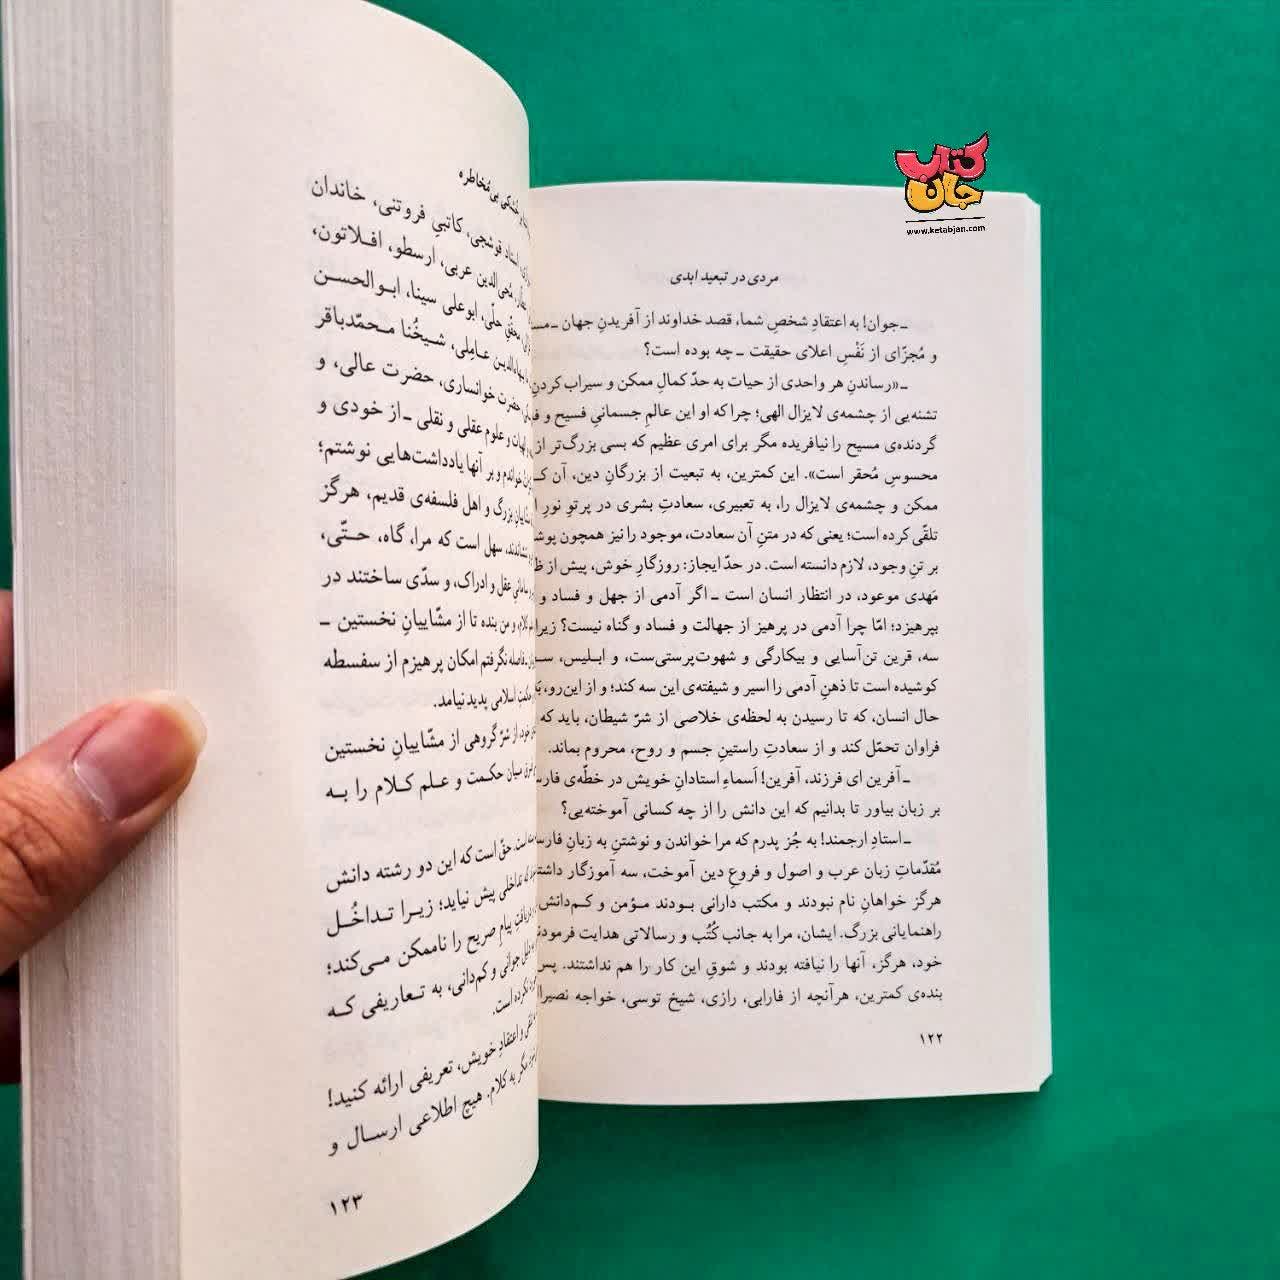 کتاب
جان
www.ketabjan.com
مردی در تبعید ابدی
ـ جوان! به اعتقادِ شخصِ شما، قصد خداوند از آفریدنِ جهان ـ
و مُجزّای از نَفْسِ اعلای حقیقت ـ چه بوده است؟
ـ «رساندنِ هر واحدی از حیات به حدّ کمالِ ممکن و سیراب کردنِ
تشنه‌یی از چشمه‌ی لایزال الهی؛ چرا که او این عالمِ جسمانیِ فسیح و
گردنده‌ی مسیح را نیافریده مگر برای امری عظیم که بسی بزرگ‌تر از
محسوسِ مُحقر است». این کمترین، به تبعیت از بزرگانِ دین، آن
ممکن و چشمه‌ی لایزال را، به تعبیری، سعادتِ بشری در پرتوِ نورِ
تلقّی کرده است؛ یعنی که در متنِ آن سعادت، موجود را نیز همچون
بر تنِ وجود، لازم دانسته است. در حدّ ایجاز: روزگارِ خوش، پیش از
مَهدی موعود، در انتظار انسان است ـ اگر آدمی از جهل و فساد و
بپرهیزد؛ امّا چرا آدمی در پرهیز از جهالت و فساد و گناه نیست؟ زیرا
سه، قرین تن‌آسایی و بیکارگی و شهوت‌پرستی‌ست، و ابلیس،
کوشیده است تا ذهنِ آدمی را اسیر و شیفته‌ی این سه کند؛ و از این‌رو،
حال انسان، که تا رسیدن به لحظه‌ی خلاصی از شرّ شیطان، باید که
فراوان تحمّل کند و از سعادتِ راستینِ جسم و روح، محروم بماند.
ـ آفرین ای فرزند، آفرین! اَسماءِ استادانِ خویش در خطّه‌ی
بر زبان بیاور تا بدانیم که این دانش را از چه کسانی آموخته‌یی؟
ـ استادِ ارجمند! به جُز پدرم که مرا خواندن و نوشتنِ به زبانِ
مُقدّماتِ زبان عرب و اصول و فروعِ دین آموخت، سه آموزگار
هرگز خواهانِ نام نبودند و مکتب دارانی بودند مؤمن و کم‌دانش
راهنمایانی بزرگ. ایشان، مرا به جانب کُتُب و رسالاتی هدایت
خود، هرگز، آنها را نیافته بودند و شوقِ این کار را هم نداشتند. پس
بنده‌ی کمترین، هرآنچه از فارابی، رازی، شیخ توسی، خواجه
۱۲۲
بی‌مُخاطره
استاد قوشجی، کاتبیِ فروتنی، خاندان
مُحی‌الدین عربی، ارسطو، افلاتون،
محقّقِ حلّی، ابوعلی سینا، ابوالحسن
عاملی، شیخُنا محمّدباقر
حضرت خوانساری، حضرت عالی، و
و علوم عقلی و نقلی ـ از خودی و
خواندم و بر آنها یادداشت‌هایی نوشتم؛
بزرگ و اهل فلسفه‌ی قدیم، هرگز
سهل است که مرا، گاه، حتّی،
عقل و ادراک، و سدّی ساختند در
و من بنده تا از مشّاییانِ نخستین ـ
فاصله نگرفتم امکان پرهیزم از سفسطه
حکمتِ اسلامی پدید نیامد.
از شرّ گروهی از مشّاییانِ نخستین
میان حکمت و علم کلام را به
حقّ است که این دو رشته دانش
تداخلی پیش نیاید؛ زیرا تداخُل
دریافتِ پیامِ صریح را ناممکن می‌کند؛
جوانی و کم‌دانی، به تعاریفی که
کرده است.
و اعتقادِ خویش، تعریفی ارائه کنید!
مگر به کلام. هیچ اطلاعی ارسال و
۱۲۳